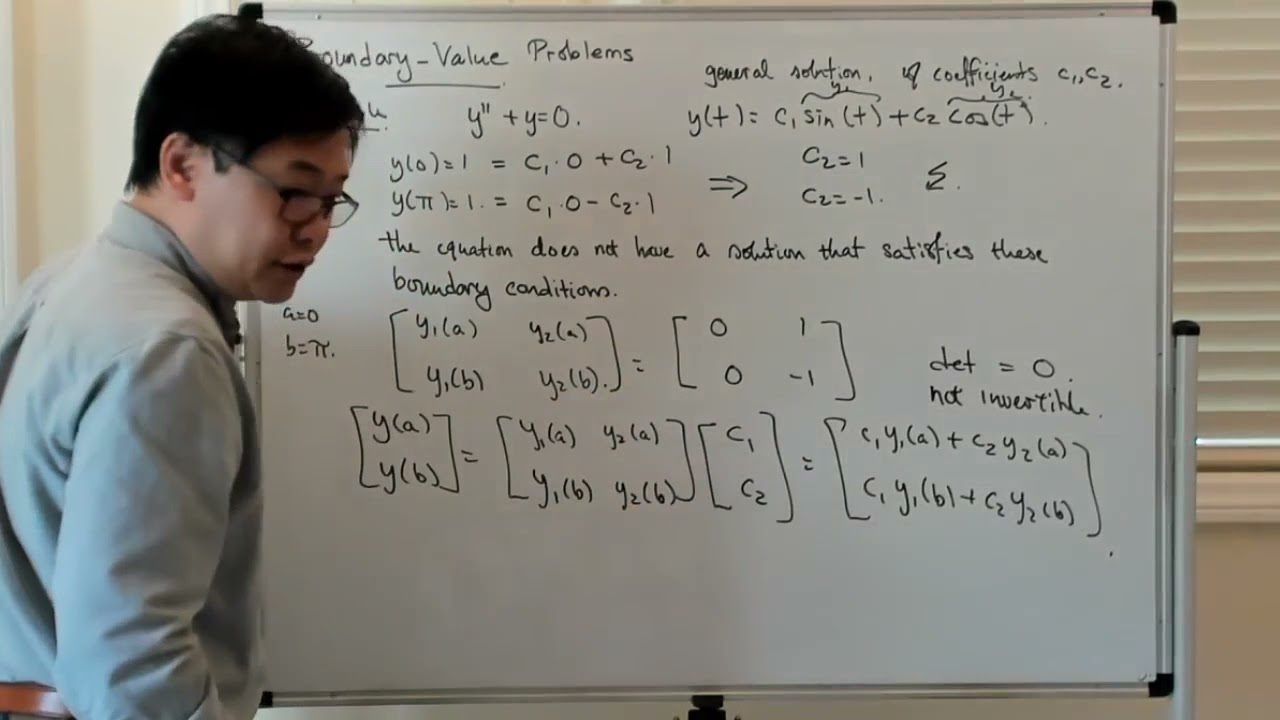 Boundary-Value Problems
general solution, coefficients c₁,c₂.
y'' + y = 0.
y₁ y₂
y(t) = c₁ sin(t) + c₂ cos(t).
y(0)=1 = c₁·0 + c₂·1 ⇒ c₂=1
y(π)=1. = c₁·0 - c₂·1 c₂=-1.
the equation does not have a solution that satisfies these
boundary conditions.
a=0
b=π.
[y₁(a) y₂(a)] = [0 1]
[y₁(b) y₂(b).] [0 -1]
det = 0.
not invertible.
[y(a)] = [y₁(a) y₂(a)] [c₁] = [c₁y₁(a) + c₂y₂(a)]
[y(b)] [y₁(b) y₂(b)] [c₂] [c₁y₁(b) + c₂y₂(b)]